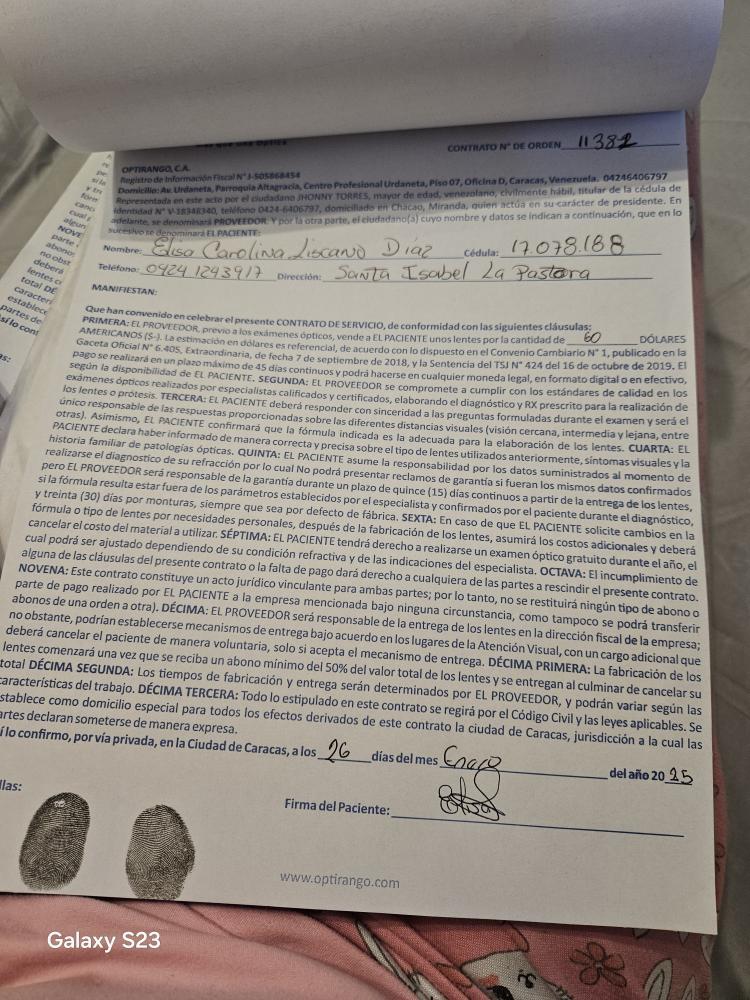 CONTRATO N° DE ORDEN 11382
OPTIRANGO, C.A.
Registro de Información Fiscal N° J-505868454
Domicilio: Av. Urdaneta, Parroquia Altagracia, Centro Profesional Urdaneta, Piso 07, Oficina D, Caracas, Venezuela. 04246406797
Representada en este acto por el ciudadano JHONNY TORRES, mayor de edad, venezolano, civilmente hábil, titular de la cédula de
identidad N° V-18348340, teléfono 0424-6406797, domiciliado en Chacao, Miranda, quien actúa en su carácter de presidente. En
adelante, se denominará PROVEEDOR. Y por la otra parte, el ciudadano(a) cuyo nombre y datos se indican a continuación, que en lo
sucesivo se denominará EL PACIENTE:
Nombre: Elisa Carolina Liscano Díaz Cédula: 17.078.188
Teléfono: 0424 1243917 Dirección: Santa Isabel La Pastora
MANIFIESTAN:
Que han convenido en celebrar el presente CONTRATO DE SERVICIO, de conformidad con las siguientes cláusulas:
PRIMERA: EL PROVEEDOR, previo a los exámenes ópticos, vende a EL PACIENTE unos lentes por la cantidad de 60 DÓLARES
AMERICANOS ($-). La estimación en dólares es referencial, de acuerdo con lo dispuesto en el Convenio Cambiario N° 1, publicado en la
Gaceta Oficial N° 6.405, Extraordinaria, de fecha 7 de septiembre de 2018, y la Sentencia del TSJ N° 424 del 16 de octubre de 2019. El
pago se realizará en un plazo máximo de 45 días continuos y podrá hacerse en cualquier moneda legal, en formato digital o en efectivo,
según la disponibilidad de EL PACIENTE. SEGUNDA: EL PROVEEDOR se compromete a cumplir con los estándares de calidad en los
exámenes ópticos realizados por especialistas calificados y certificados, elaborando el diagnóstico y RX prescrito para la realización de
los lentes o prótesis. TERCERA: EL PACIENTE deberá responder con sinceridad a las preguntas formuladas durante el examen y será el
único responsable de las respuestas proporcionadas sobre las diferentes distancias visuales (visión cercana, intermedia y lejana, entre
otras). Asimismo, EL PACIENTE confirmará que la fórmula indicada es la adecuada para la elaboración de los lentes. CUARTA: EL
PACIENTE declara haber informado de manera correcta y precisa sobre el tipo de lentes utilizados anteriormente, síntomas visuales y la
historia familiar de patologías ópticas. QUINTA: EL PACIENTE asume la responsabilidad por los datos suministrados al momento de
realizarse el diagnostico de su refracción por lo cual No podrá presentar reclamos de garantía si fueran los mismos datos confirmados
pero EL PROVEEDOR será responsable de la garantía durante un plazo de quince (15) días continuos a partir de la entrega de los lentes,
si la fórmula resulta estar fuera de los parámetros establecidos por el especialista y confirmados por el paciente durante el diagnóstico,
y treinta (30) días por monturas, siempre que sea por defecto de fábrica. SEXTA: En caso de que EL PACIENTE solicite cambios en la
fórmula o tipo de lentes por necesidades personales, después de la fabricación de los lentes, asumirá los costos adicionales y deberá
cancelar el costo del material a utilizar. SÉPTIMA: EL PACIENTE tendrá derecho a realizarse un examen óptico gratuito durante el año, el
cual podrá ser ajustado dependiendo de su condición refractiva y de las indicaciones del especialista. OCTAVA: El incumplimiento de
alguna de las cláusulas del presente contrato o la falta de pago dará derecho a cualquiera de las partes a rescindir el presente contrato.
NOVENA: Este contrato constituye un acto jurídico vinculante para ambas partes; por lo tanto, no se restituirá ningún tipo de abono o
parte de pago realizado por EL PACIENTE a la empresa mencionada bajo ninguna circunstancia, como tampoco se podrá transferir
abonos de una orden a otra). DÉCIMA: EL PROVEEDOR será responsable de la entrega de los lentes en la dirección fiscal de la empresa;
no obstante, podrían establecerse mecanismos de entrega bajo acuerdo en los lugares de la Atención Visual, con un cargo adicional que
deberá cancelar el paciente de manera voluntaria, solo si acepta el mecanismo de entrega. DÉCIMA PRIMERA: La fabricación de los
lentes comenzará una vez que se reciba un abono mínimo del 50% del valor total de los lentes y se entregan al culminar de cancelar su
total DÉCIMA SEGUNDA: Los tiempos de fabricación y entrega serán determinados por EL PROVEEDOR, y podrán variar según las
características del trabajo. DÉCIMA TERCERA: Todo lo estipulado en este contrato se regirá por el Código Civil y las leyes aplicables. Se
establece como domicilio especial para todos los efectos derivados de este contrato la ciudad de Caracas, jurisdicción a la cual las
artes declaran someterse de manera expresa.
í lo confirmo, por vía privada, en la Ciudad de Caracas, a los 26 días del mes Enero del año 2025
llas:
Firma del Paciente:
www.optirango.com
Galaxy S23